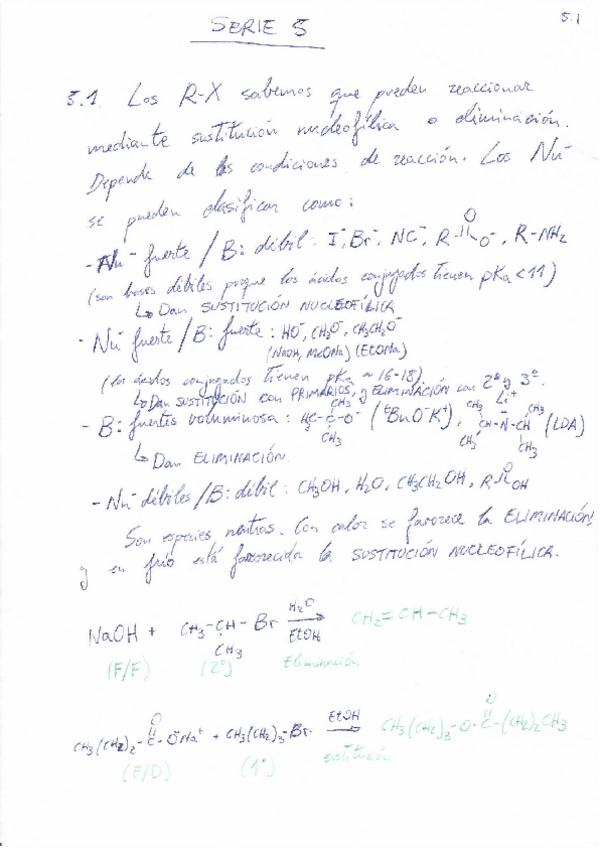 SERIE 5
5.1
5.1. Los R-X sabemos que pueden reaccionar
mediante sustitución nucleofílica o eliminación.
Depende de las condiciones de reacción. Los Nu⁻
se pueden clasificar como:
- Nu⁻ fuerte / B: débil: I⁻, Br⁻, NC⁻, R-C(=O)-O⁻, R-NH₂
(son bases débiles porque los ácidos conjugados tienen pKa < 11)
↳ Dan SUSTITUCIÓN NUCLEOFÍLICA
- Nu⁻ fuerte / B: fuerte: HO⁻, CH₃O⁻, CH₃CH₂O⁻
(NaOH, MeONa) (EtONa)
(los ácidos conjugados tienen pKa ~ 16-18)
↳ Dan SUSTITUCIÓN con PRIMARIOS, y ELIMINACIÓN con 2º y 3º.
- B: fuertes voluminosa: H₃C-C(CH₃)(CH₃)-O⁻ (ᵗBuO⁻K⁺), CH₃-CH(CH₃)-N⁻-CH(CH₃)-CH₃ Li⁺ (LDA)
↳ Dan ELIMINACIÓN.
- Nu⁻ débiles / B: débil: CH₃OH, H₂O, CH₃CH₂OH, R-C(=O)-OH
Son especies neutras. Con calor se favorece la ELIMINACIÓN,
y en frío está favorecida la SUSTITUCIÓN NUCLEOFÍLICA.
NaOH + CH₃-CH(CH₃)-Br →(H₂O / EtOH) CH₂=CH-CH₃
(F/F) (2º) Eliminación
CH₃(CH₂)₂-C(=O)-O⁻Na⁺ + CH₃(CH₂)₃-Br →(EtOH) CH₃(CH₂)₃-O-C(=O)-(CH₂)₂CH₃
(F/D) (1º) sustitución